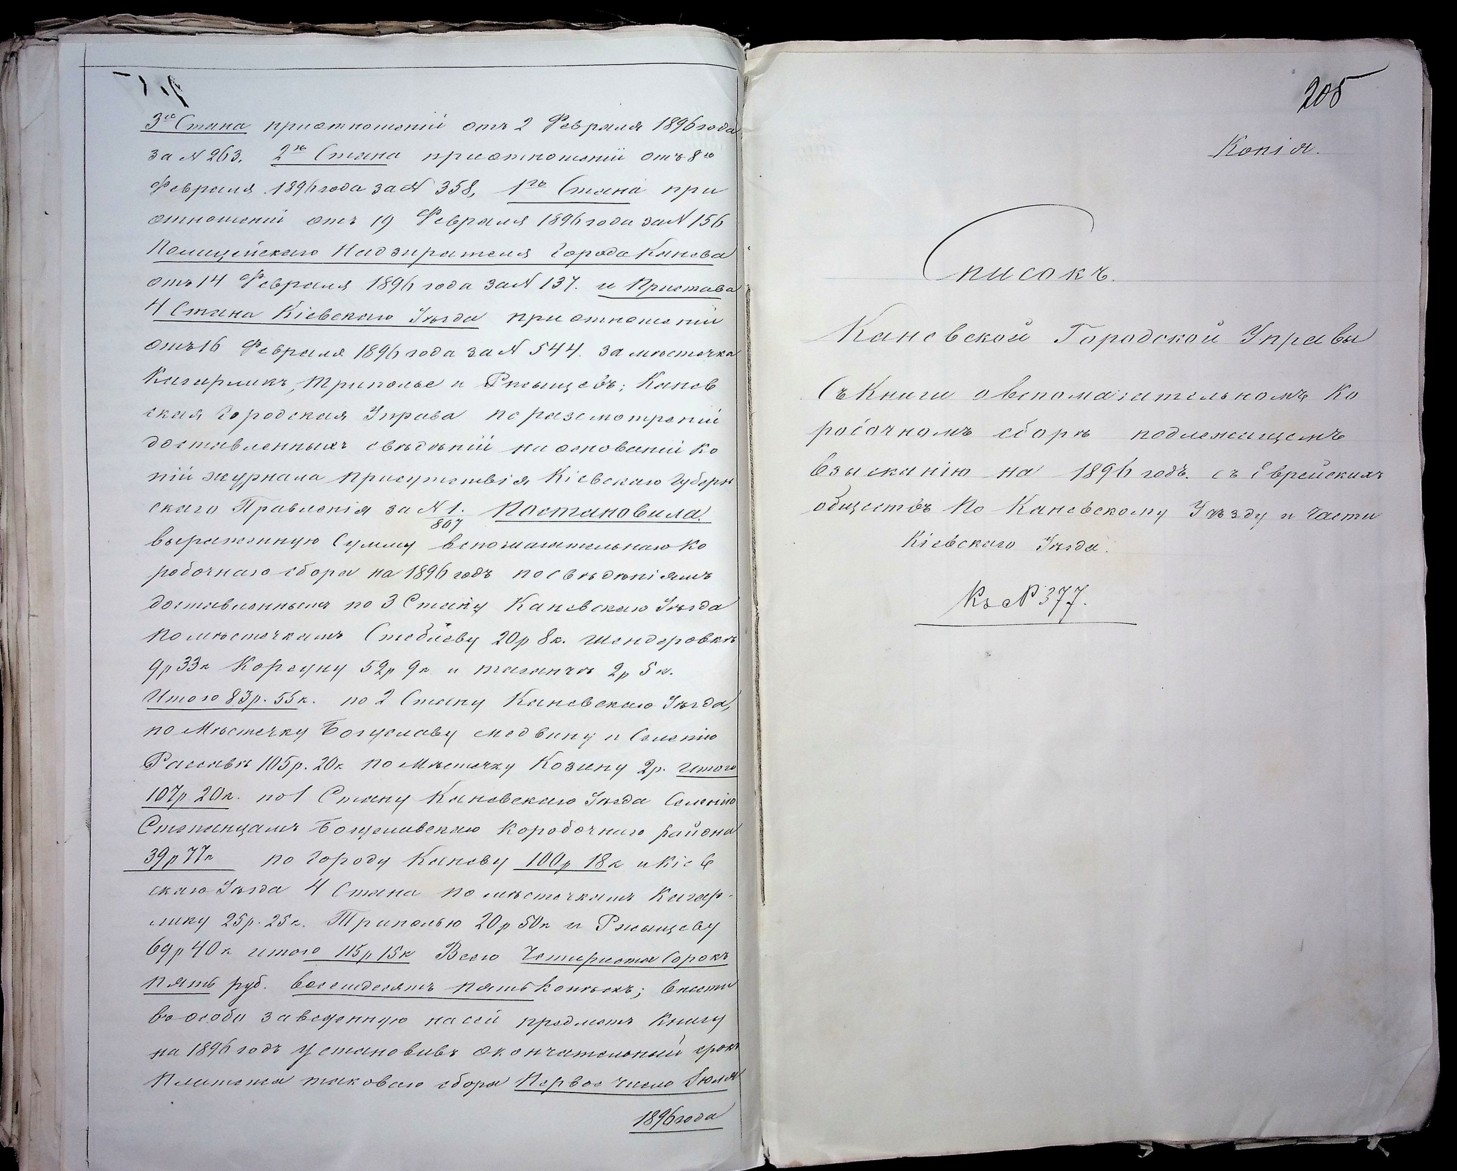 3го Стана при отношеніи отъ 2 Февраля 1896 года
за № 263. 2го Стана при отношеніи отъ 8го
Февраля 1896 года за № 358, 1го Стана при
отношеніи отъ 19 Февраля 1896 года за № 156
Полицейскаго Надзирателя Города Канева
отъ 14 Февраля 1896 года за № 137. и Пристава
4 Стана Кіевскаго Уѣзда при отношеніи
отъ 16 Февраля 1896 года за № 544. за мѣстечка
Кагарликъ, Триполье и Ржыщевъ; Канев
ская Городская Управа по разсмотреніи
доставленныхъ свѣдѣній на основаніи ко
піи журнала присутствія Кіевскаго Губерн
скаго Правленія за № 1/807 Постановила:
выраженную Сумму вспомагательнаго Ко
робочнаго сбора на 1896 годъ по свѣдѣніямъ
доставленнымъ по 3 Стану Каневскаго Уѣзда
По мѣстечкамъ Стеблеву 20р 8к. Шендеровкѣ
9р 33к Корсуну 52р 9к и таганчѣ 2р 5к.
Итого 83р. 55к. по 2 Стану Каневскаго Уѣзда,
по Мѣстечку Богуславу медвину и Селенію
Рассавѣ 105р. 20к по Мѣстечку Козину 2р. Итого
107р 20к. по 1 Стану Каневскаго Уѣзда Селенію
Степанцамъ Богуславскаго Коробочнаго района
39р 77к по Городу Каневу 100р 18к и Кіев
скаго Уѣзда 4 Стана по мѣстечкамъ Кагар-
лику 25р. 25к. Триполью 20р 50к и Ржыщеву
69р 40к итого 115р 15к Всего Четыриста Сорокъ
Пять руб. восемдесятъ пять копѣекъ; внести
въ особо заведенную на сей предметъ Книгу
на 1896 годъ установивъ окончательный срокъ
Платежа таковаго сбора Первое число Июля
1896 года
205
Копія.
Списокъ.
Каневской Городской Управы
Съ Книги о вспомагательномъ Ко
робочномъ сборѣ подлежащемъ
взысканію на 1896 годъ. съ Еврейскихъ
обществъ По Каневскому Уѣзду и части
Кіевскаго Уѣзда.
Къ № 377.